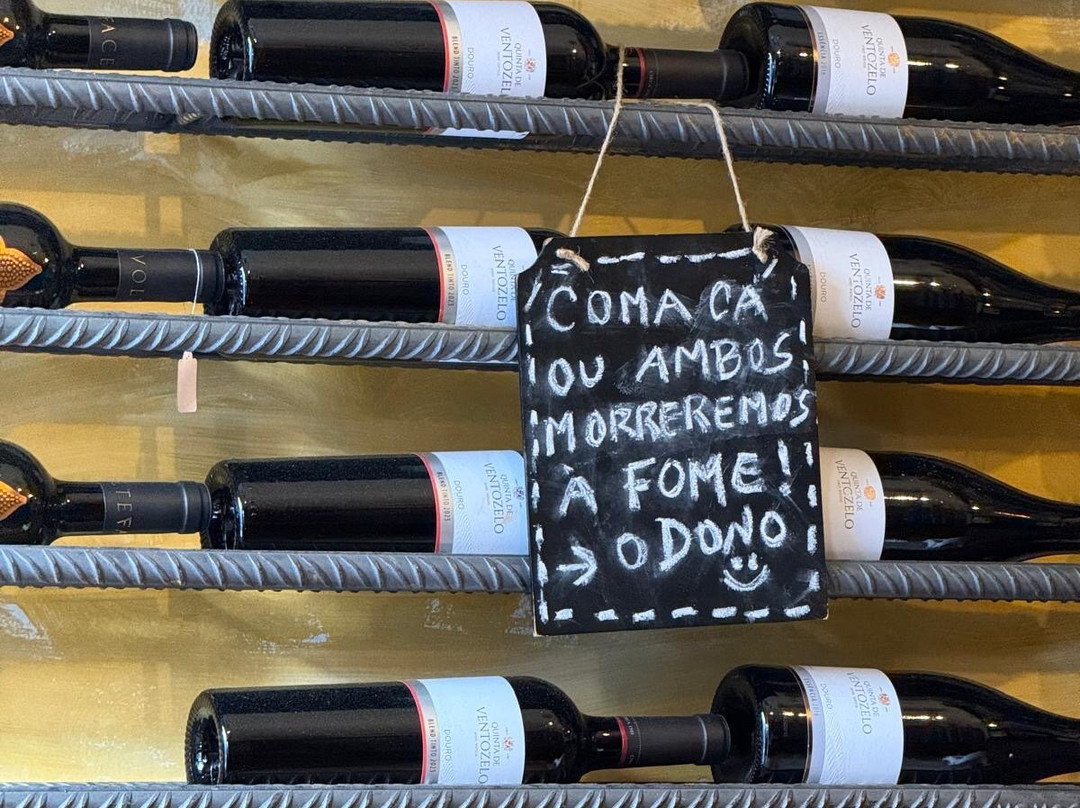 ACE
BLEND TINTO 2023
DOURO
QUINTA DE
VENTOZELO
ESSÊNCIA 2016
DOURO
QUINTA DE
VENTOZELO
VOL
BLEND TINTO 2023
DOURO
QUINTA DE
VENTOZELO
DOURO
QUINTA DE
VENTOZELO
COMA CÁ
OU AMBOS
MORREREMOS
À FOME!
→ O DONO
BLEND TINTO 2023
DOURO
QUINTA DE
VENTOZELO
QUINTA DE
VENTOZELO
BLEND TINTO 2023
DOURO
QUINTA DE
VENTOZELO
DOURO
QUINTA DE
VENTOZELO